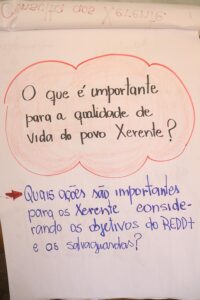 dos Xerente
O que é importante
para a qualidade de
vida do povo Xerente?
Quais ações são importantes
para os Xerente conside-
rando os objetivos do REDD+
e as salvaguardas?